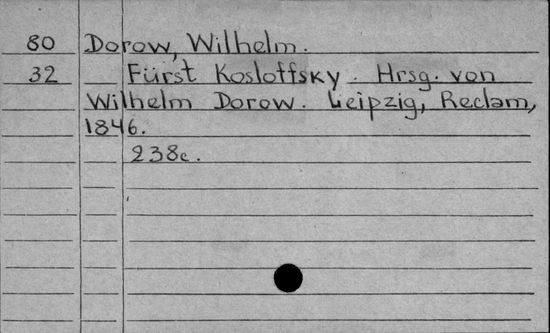 80 Dorow, Wilhelm.
32 Fürst Kosloffsky. Hrsg. von
Wilhelm Dorow. Leipzig, Reclam,
1846.
238c.